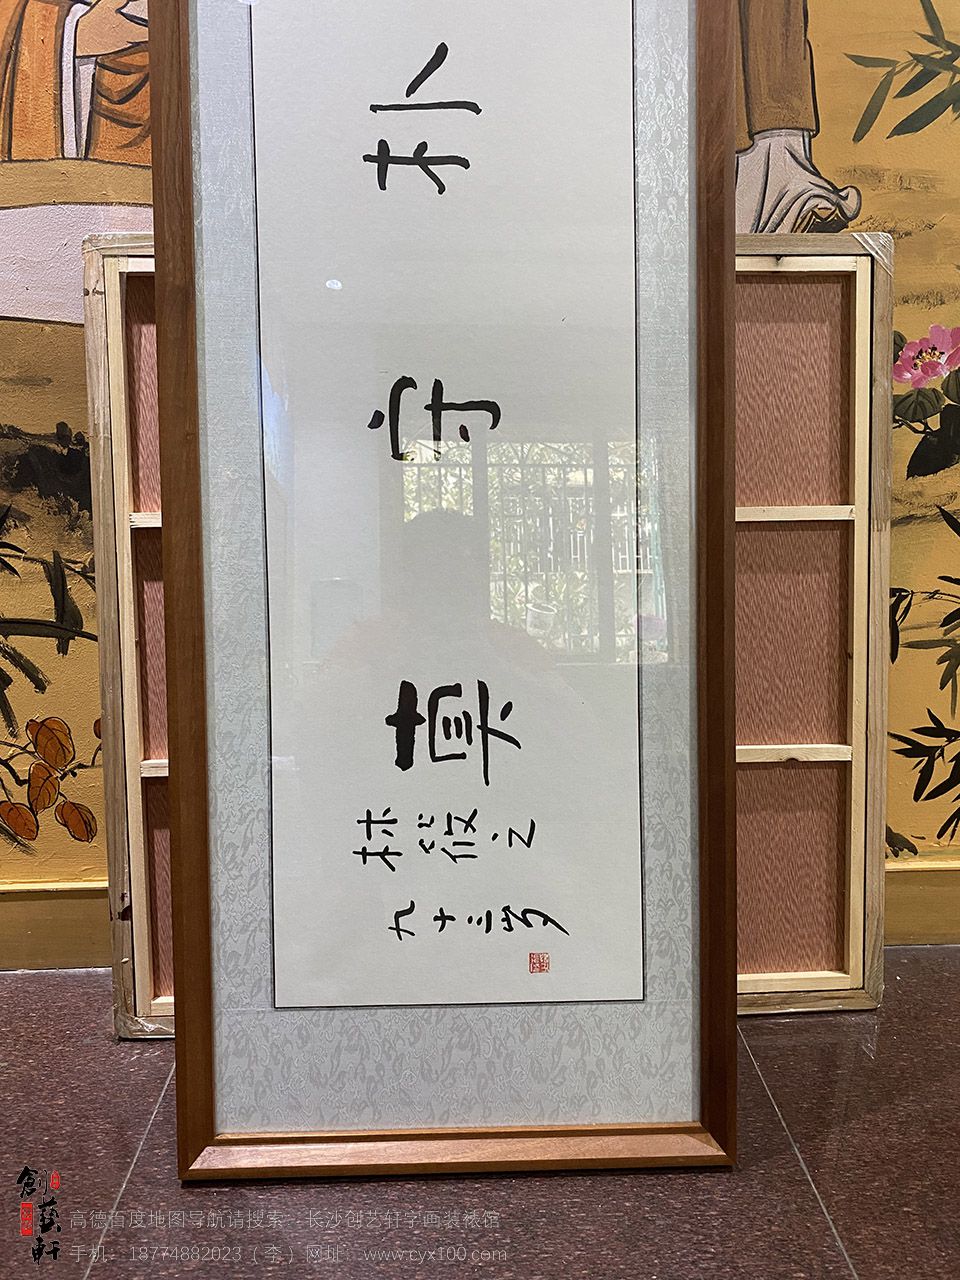 朴守真
林筱之
九十三岁
創藝軒
高德百度地图导航请搜索：长沙创艺轩字画装裱馆
手机：18774882023（李）网址：www.cyx100.com